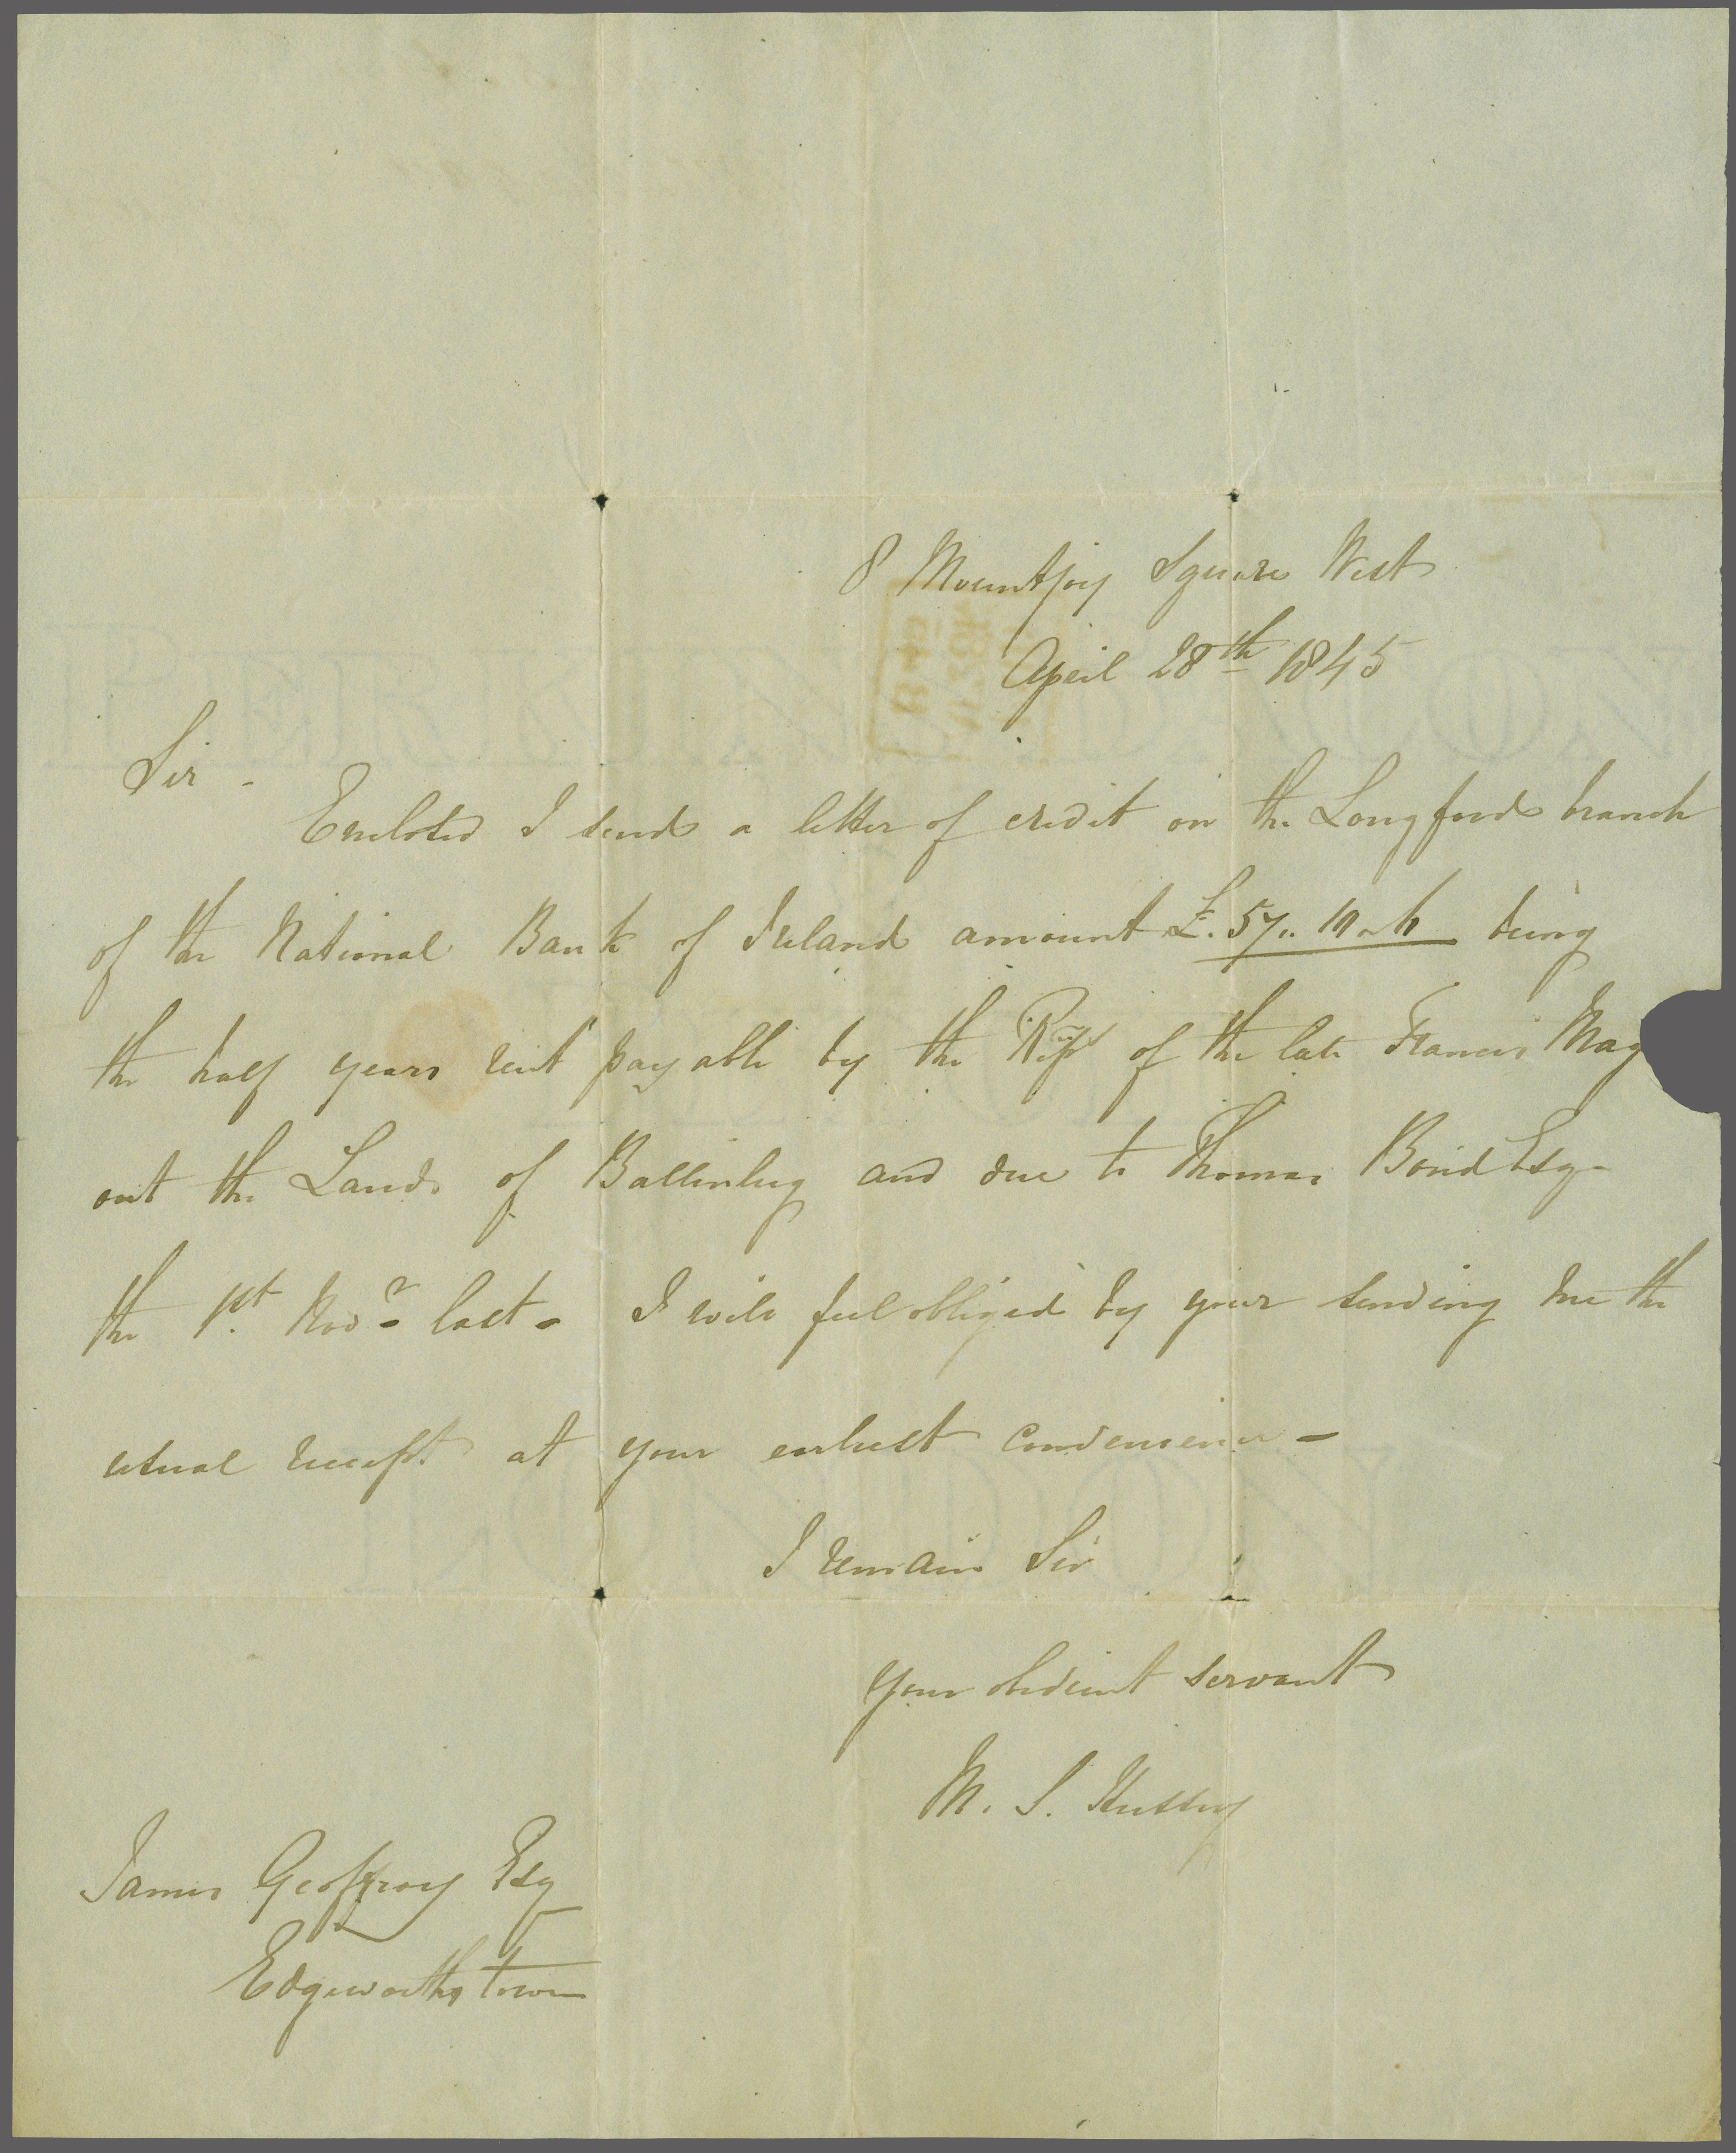 8 Mountjoy Square West
April 28th 1845
Sir -
Enclosed I send a letter of credit on the Longford branch
of the National Bank of Ireland amount £. 57.. being
the half years rent payable by the Reps of the late Francis
out the Lands of and due to Thomas Bond Esq-
the 1st. Novr- last - I will feel obliged by your sending me the
usual receipt at your earliest convenience -
I remain Sir
your obedient servant
M. S. Hussey
James Geoffroy Esq
Edgeworthstown